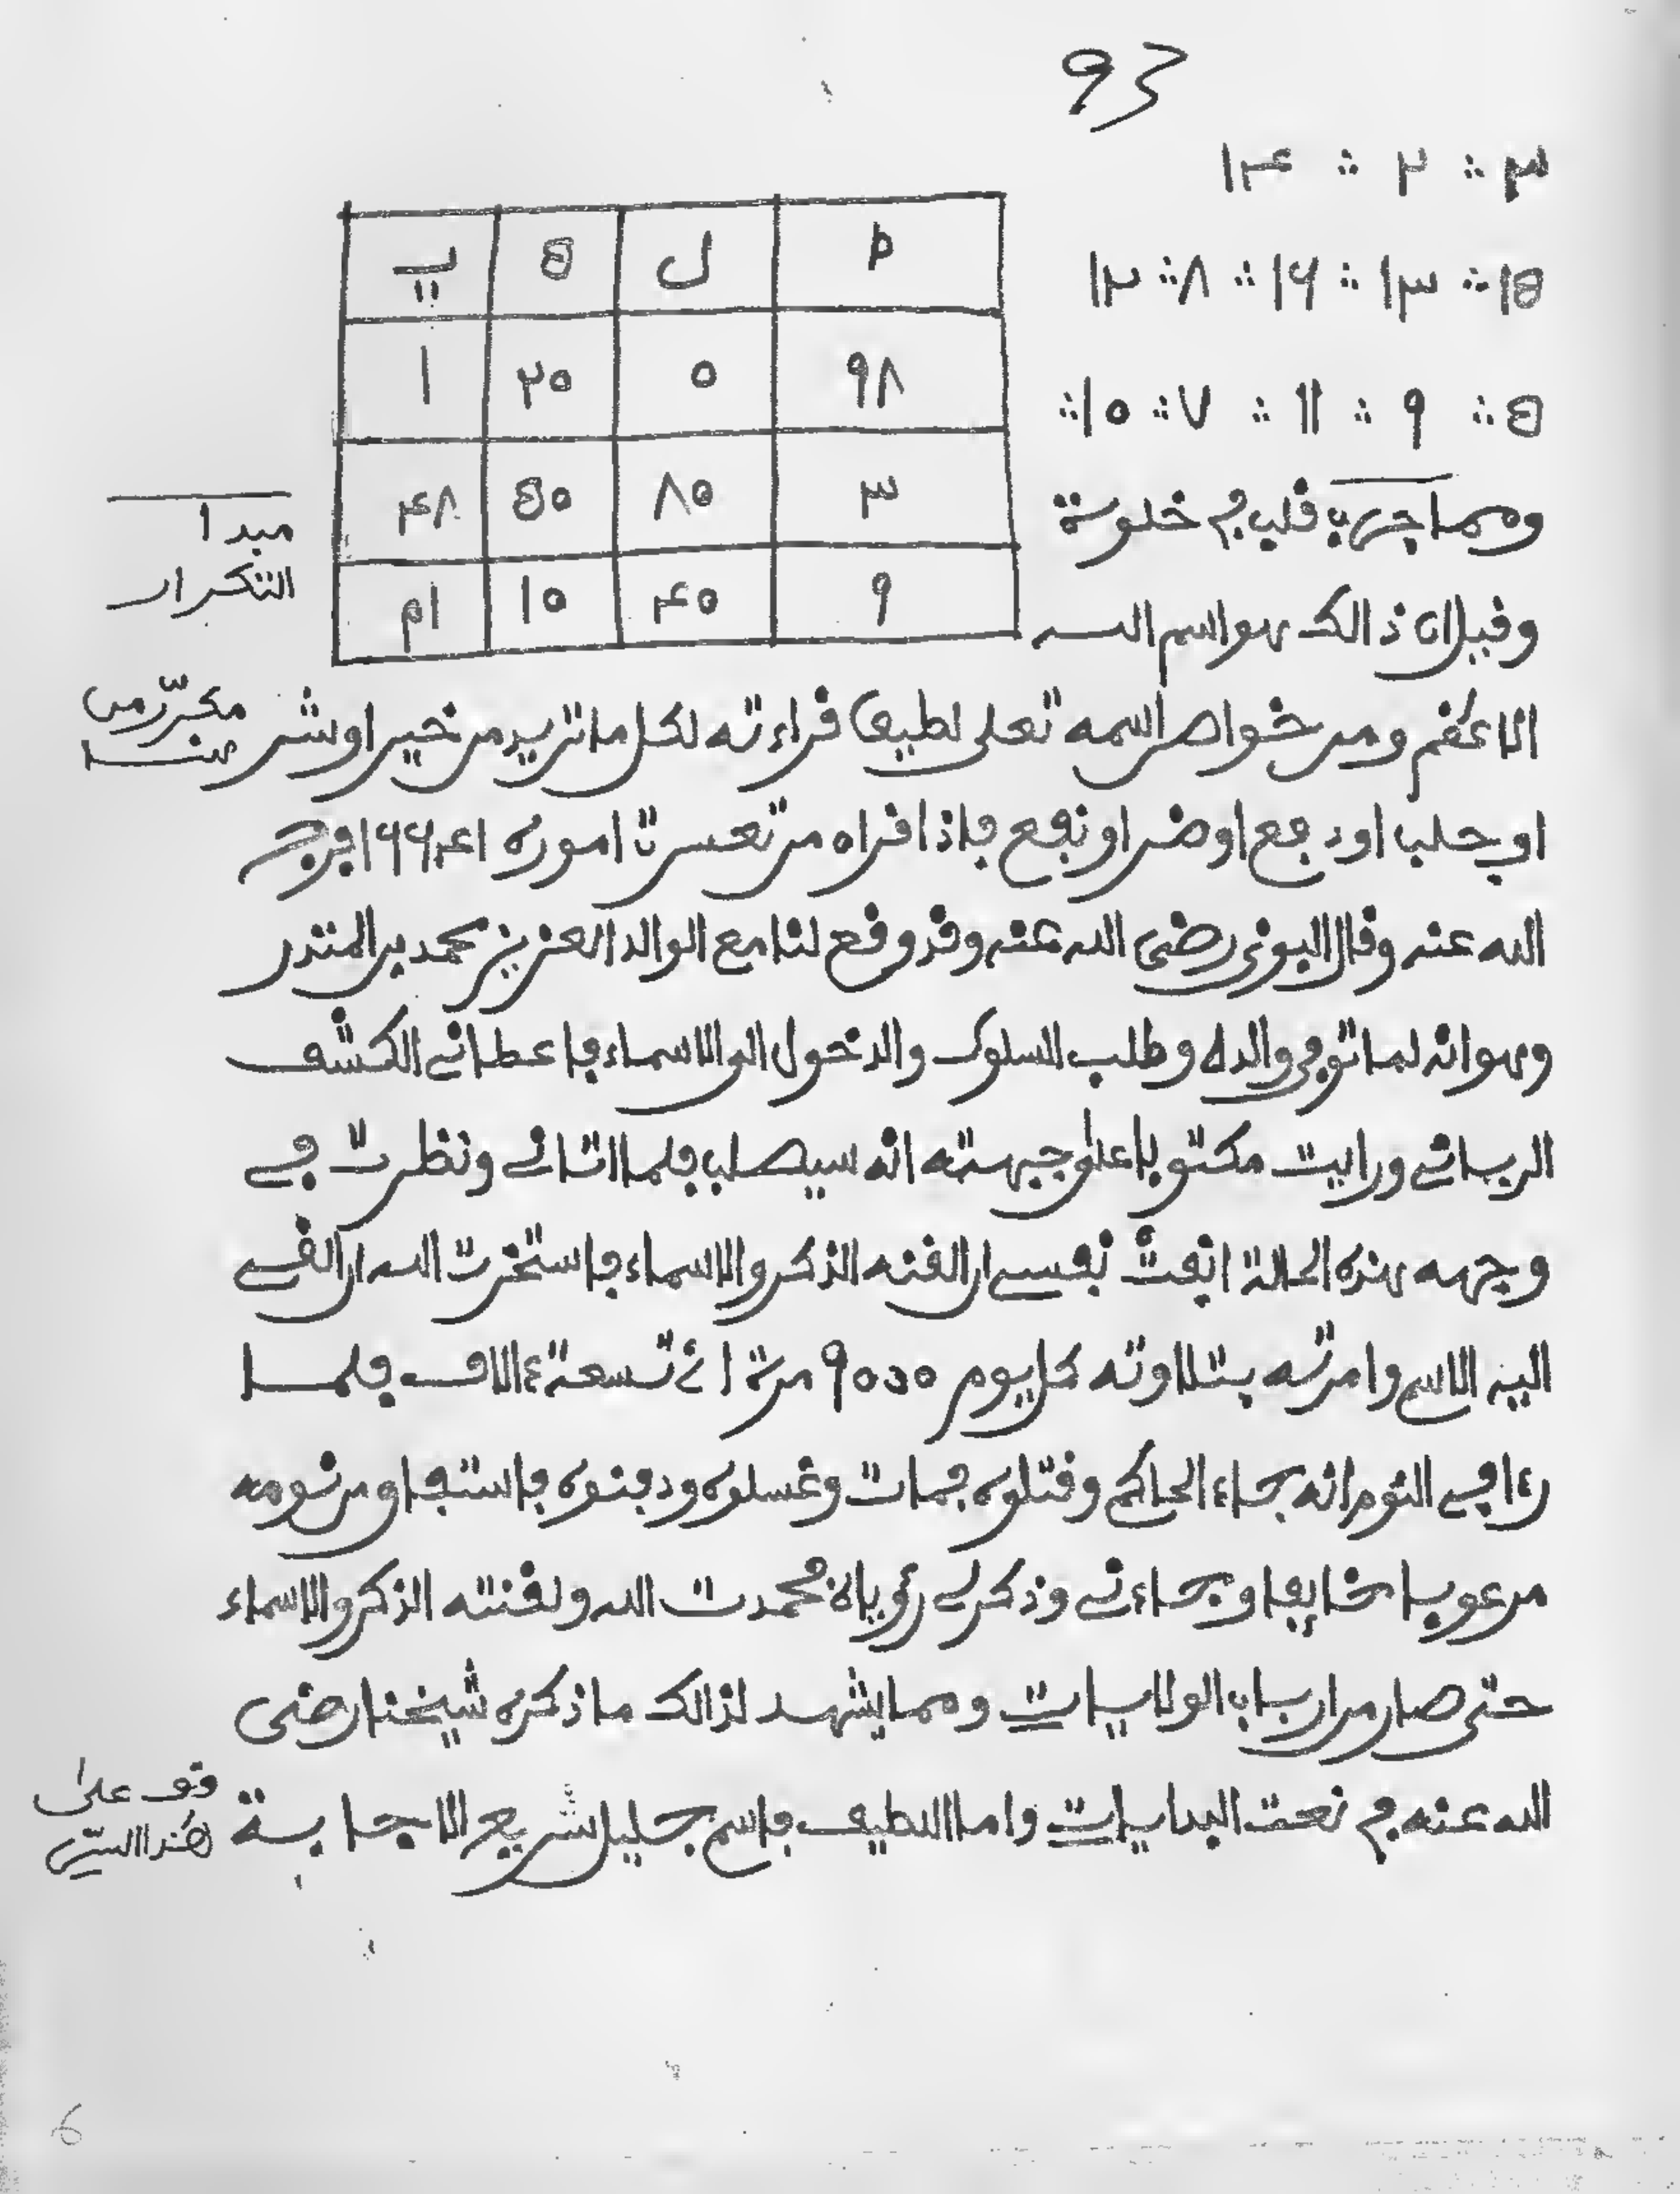 93
٣ ∴ ٢ ∴ ١٤
١٥ ∴ ١٣ ∴ ١٦ ∴ ٨ ∴ ١٢
٥ ∴ ٩ ∴ ١١ ∴ ٧ ∴ ١٠ ∴
ل ٥ ي
٩٨ ٥ ٢٥ ١
٣ ٨٥ ٥٥ ٤٨
٩ ٤٥ ١٥
ومما جرب خلوة
وفيل ان ذالك هو اسم الله
مبدا
التكرار
الاعظم ومن خواص اسمه تعلى لطيف قراءته لكل ما تريد من خير او شر
مكرّر من
هنا
او جلب او دفع او ضر او نفع فاذا قراه من تعسرت اموره ١٦٦٤١ فرج
الله عنه وقال البوني رضى الله عنه وقد وقع لنا مع الوالد العزيز محمد بن المنذر
وهو انه لما توفي والده وطلب السلوك والدخول الى الاسماء فاعطاني الكشف
الرباني ورايت مكتوبا على جبهته انه سيصلب فلما اتاني ونظرت في
وجهه هذه الحالة نفسي ان القنه الذكر والاسماء فاستخرت الله ان القي
اليه الاسم وامرته بتلاوته كل يوم ٩٠٠٠ مرة اي تسعة ءالاف فلما
رءا في النوم انه جاء الحاكم وقتلوه فمات وغسلوه ودفنوه فاستفاو من نومه
مرعوبا خايفا وجاءني وذكر لي رؤياه فحمدت الله ولقنته الذكر والاسماء
حتى صار من ارباب الولايات ومما يشهد لذالك ما ذكره شيخنا رضى
الله عنه في نعت البدايات واما اللطيف فاسم جليل سريع الاجابة
قف على
هذا السّر
6